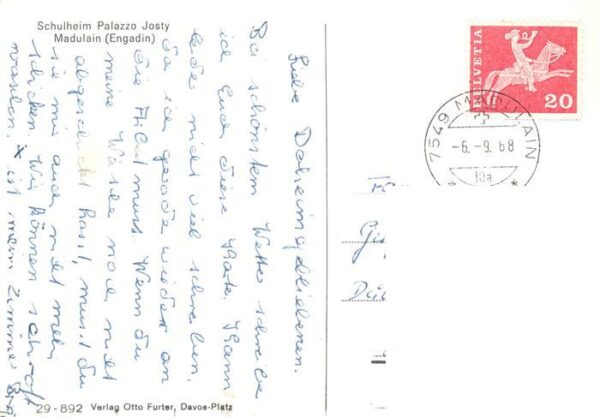 Schulheim Palazzo Josty
Madulain (Engadin)
Liebe Daheimgebliebenen.
Bei schönstem Wetter schreibe
ich Euch diese Karte. Kann
leider nicht viel schreiben,
da ich gerade wieder an
die Arbeit muss. Wenn du
meine Wäsche noch nicht
abgeschickt hast, musst du
sie mir auch nicht mehr
schicken. Wir können schon
waschen. x ist mein Zimmer
HELVETIA
20
7549 MADULAIN
-6.-9.68
29-892 Verlag Otto Furter, Davos-Platz